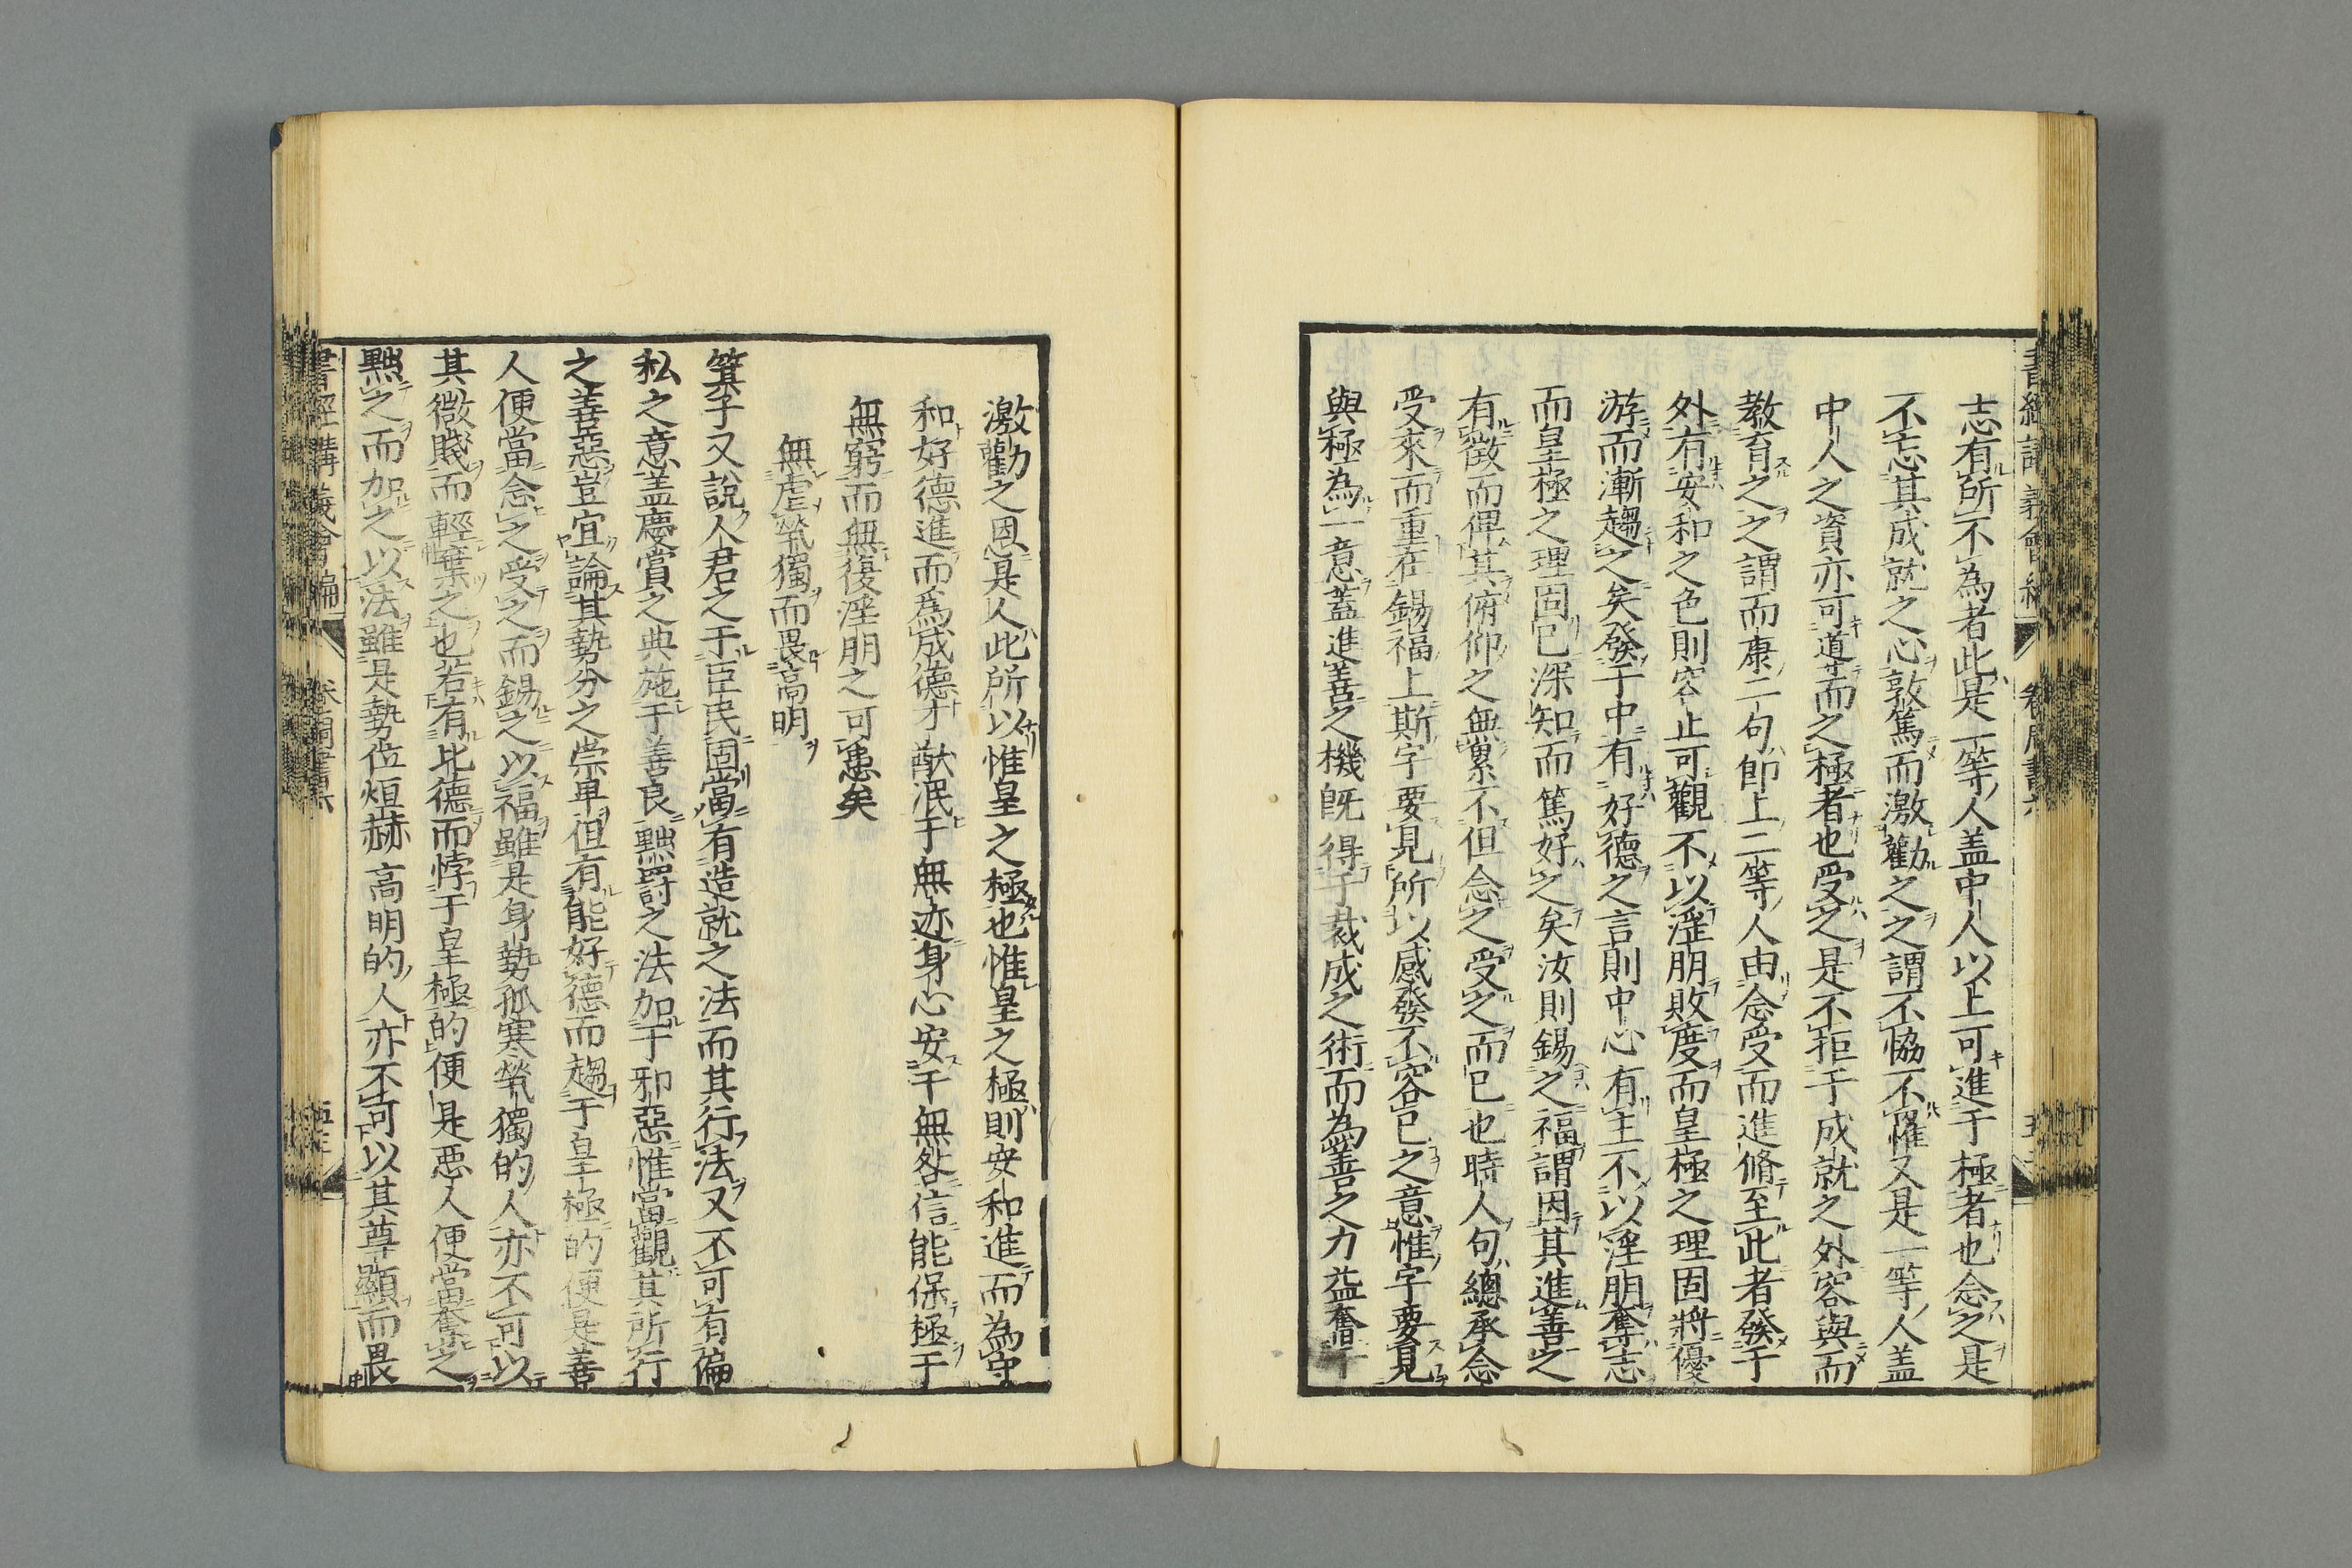 志有所不為者此是一等人盖中人以上可進于極者也念之是
不忘其成就之心敦篤而激勸之之謂不恊不罹又是一等人盖
中人之資亦可道而之極者也受之是不拒于成就之外容與而
教育之之謂而康二句即上二等人由念受而進脩至此者發于
外有安和之色則容止可觀不以淫朋敗度而皇極之理固將優
游而漸趨之矣發于中有好德之言則中心有主不以淫朋奪志
而皇極之理固已深知而篤好之矣汝則錫之福謂因其進善之
有徵而俾其俯仰之無累不但念之受之而已也時人句總承念
受來而重在錫福上斯字要見所以感發不容已之意惟字要見
與極為一意蓋進善之機旣得于裁成之術而為善之力益奮
激勸之恩是人此所以惟皇之極也惟皇之極則安和進而為守
和好德進而為成德才猷泯于無迹身心安于無咎信能保極于
無窮而無復淫朋之可患矣
無虐煢獨而畏高明
箕子又說人君之于臣民固當有造就之法而其行法又不可有偏
私之意盖慶賞之典施于善良黜罸之法加于邪惡惟當觀其所行
之善惡豈宜論其勢分之崇卑但有能好德而趨于皇極的便是善
人便當念之受之而錫之以福雖是身勢孤寒煢獨的人亦不可以
其微賤而輕棄之也若有比德而悖于皇極的便是惡人便當奪之
黜之而加之以法雖是勢位烜赫高明的人亦不可以其尊顯而畏
書經講義會編